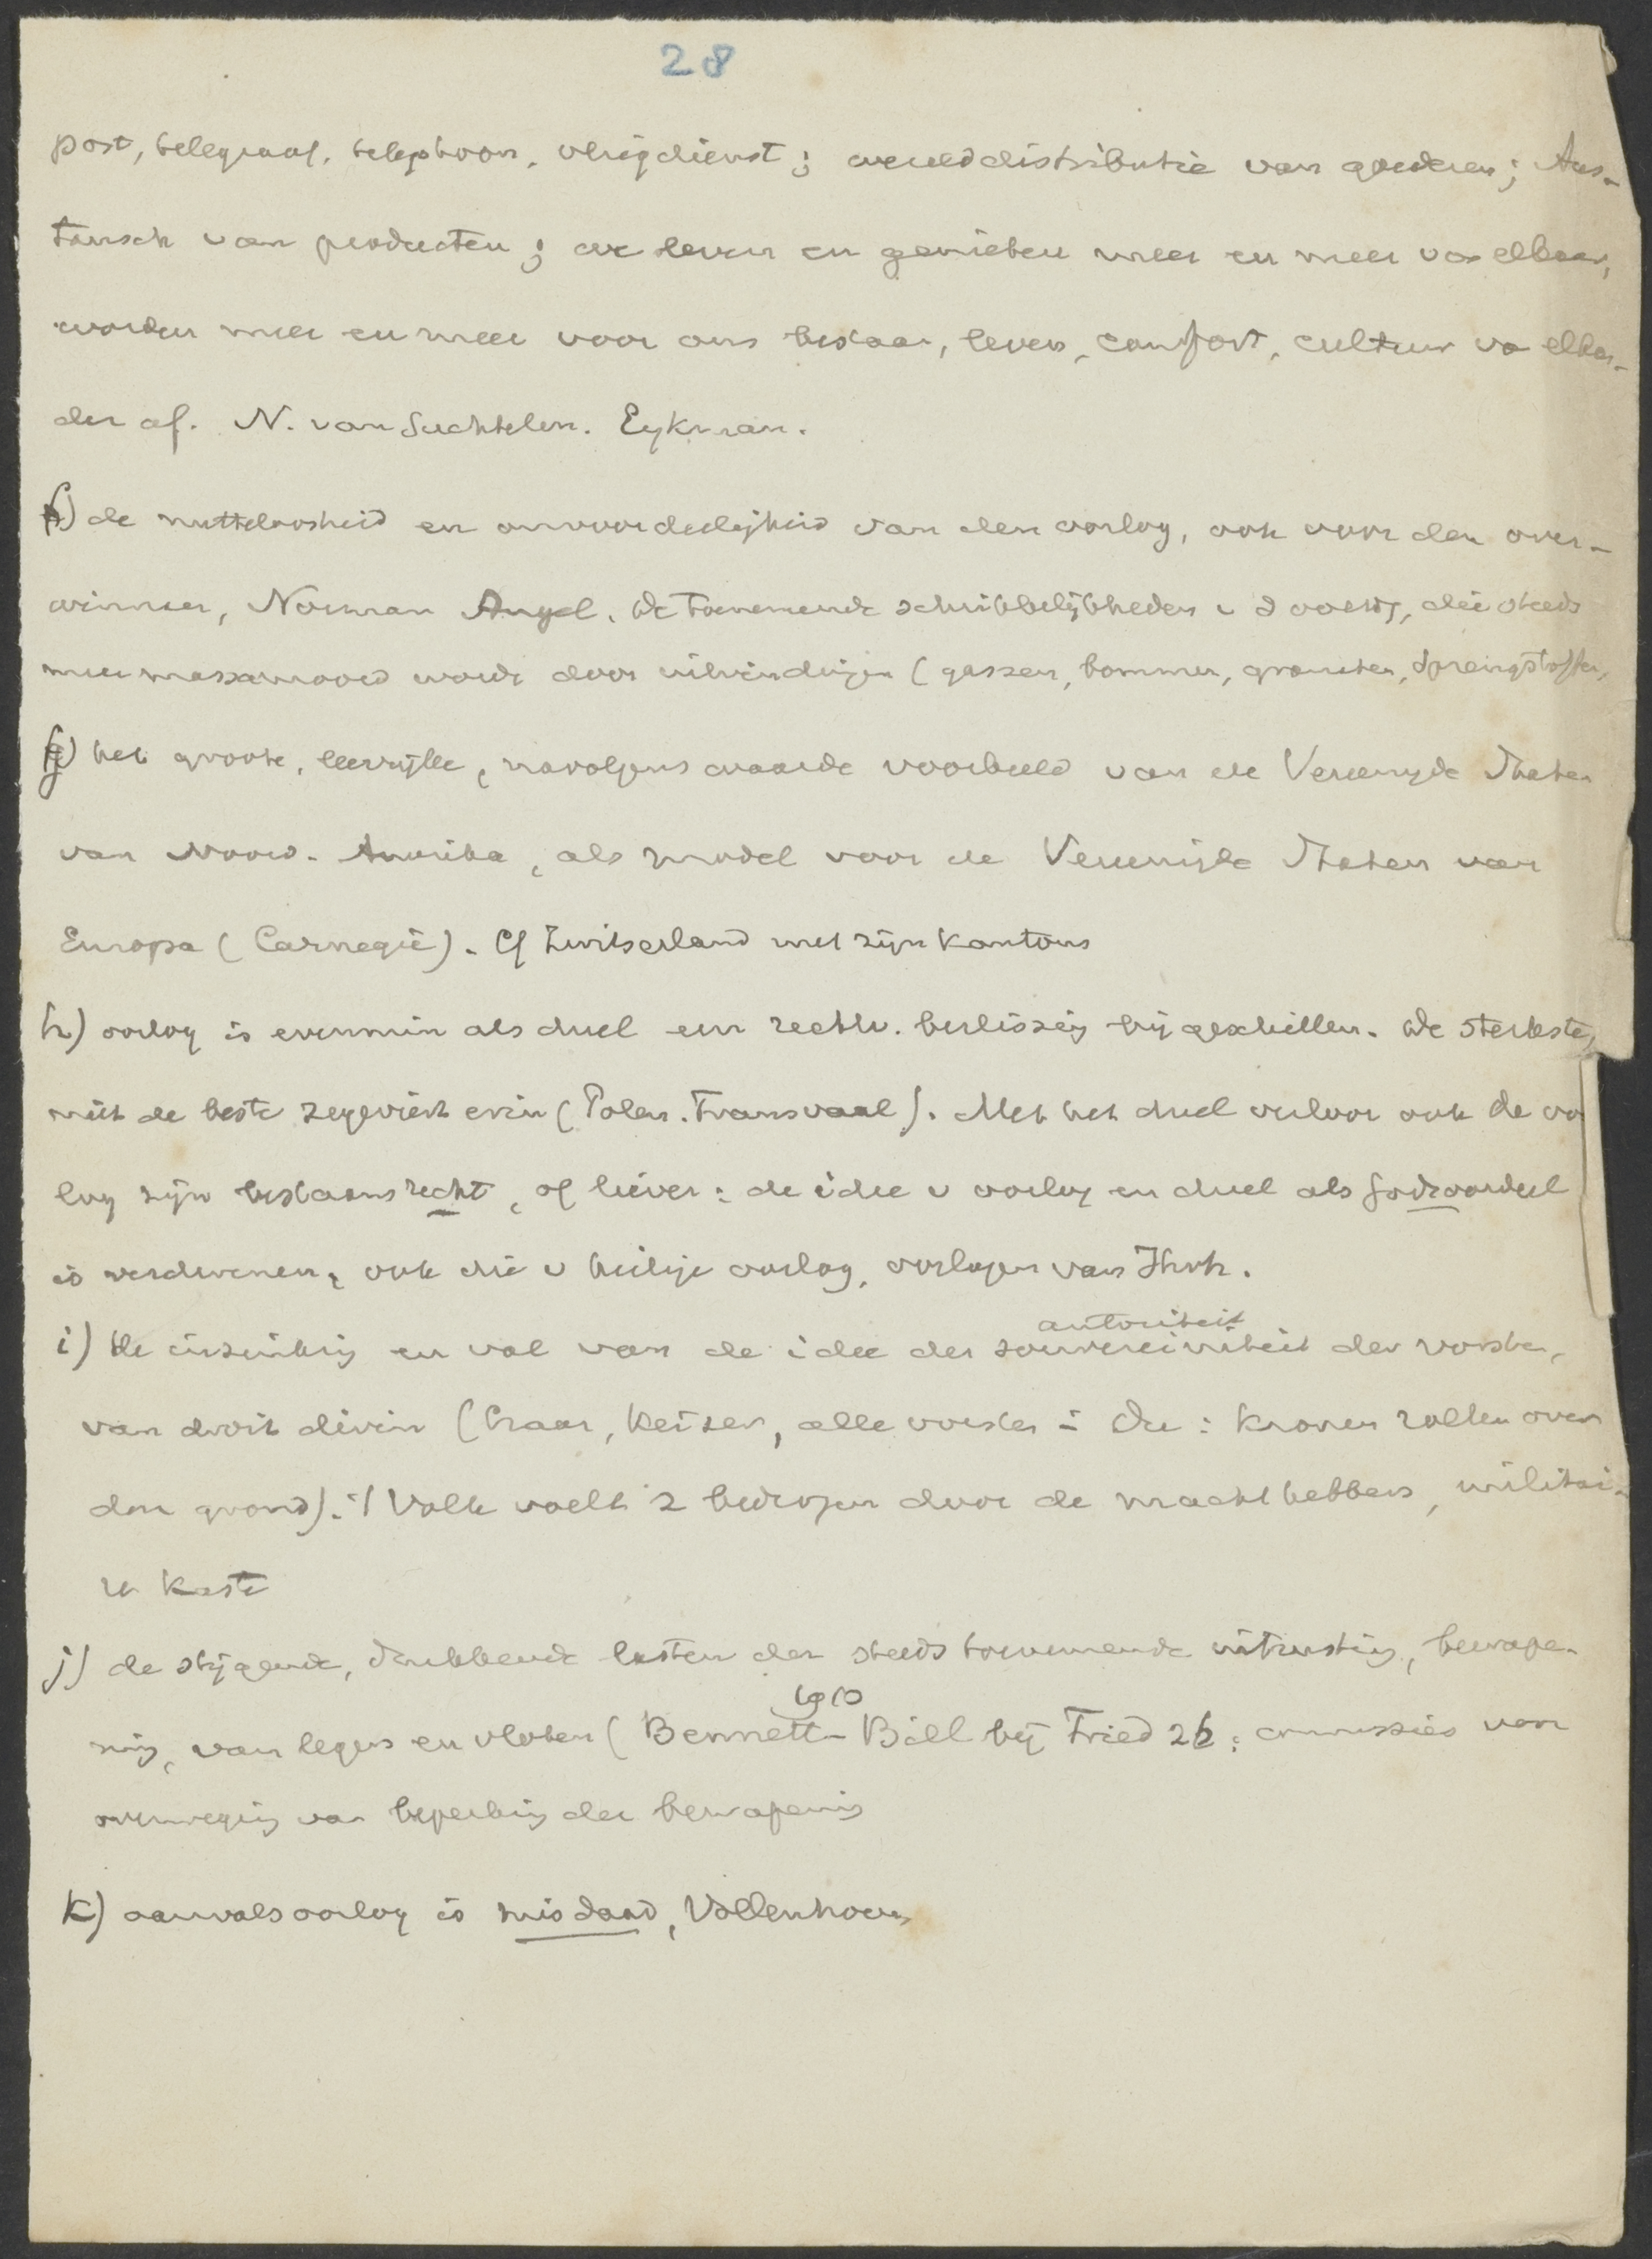 28
post, telegraaf, telephoon, vliegdienst; werelddistributie van goederen; Aus-
tausch van producten; we leven en genieten meer en meer van elkaar,
worden meer en meer voor ons bestaan, leven, comfort, cultuur va elkan-
der af. N. van Suchtelen. Eykman.
f) de nutteloosheid en onvoordeeligheid van den oorlog, ook voor den over-
winnaar, Norman Angel. De toenemende schrikkelijkheden v d oorlog, die steeds
meer massamoord wordt door uitvindingen (gassen, bommen, granaten, springstoffen,
g) het groote, leerrijke, navolgenswaarde voorbeeld van de Vereenigde Staten
van Noord-Amerika, als model voor de Vereenigde Staten van
Europa (Carnegie). Cf Zwitserland met zijn kantons
h) oorlog is evenmin als duel een rechtv. beslissing bij geschillen. De sterkste,
niet de beste zegeviert erin (Polen. Transvaal). Met het duel verloor ook de oor
log zijn bestaansrecht, of liever: de idee v oorlog en duel als Godsoordeel
is verdwenen, ook die v heilige oorlog, oorlogen van Jhvh.
autoriteit
i) De inzinking en val van de idee der souvereiniteit der vorsten,
van droit divin (Czaar, Keizer, alle vorsten i Du: kronen rollen over
den grond). 't Volk voelt z bedrogen door de machthebbers, militai-
re kaste
j) de stijgende, drukkende lasten der steeds toenemende uitrusting, bewape-
1910
ning, van legers en vloten (Bennett-Bill bij Fried 26: commissies van
overweging van beperking der bewapening
k) aanvalsoorlog is misdaad, Vollenhoven